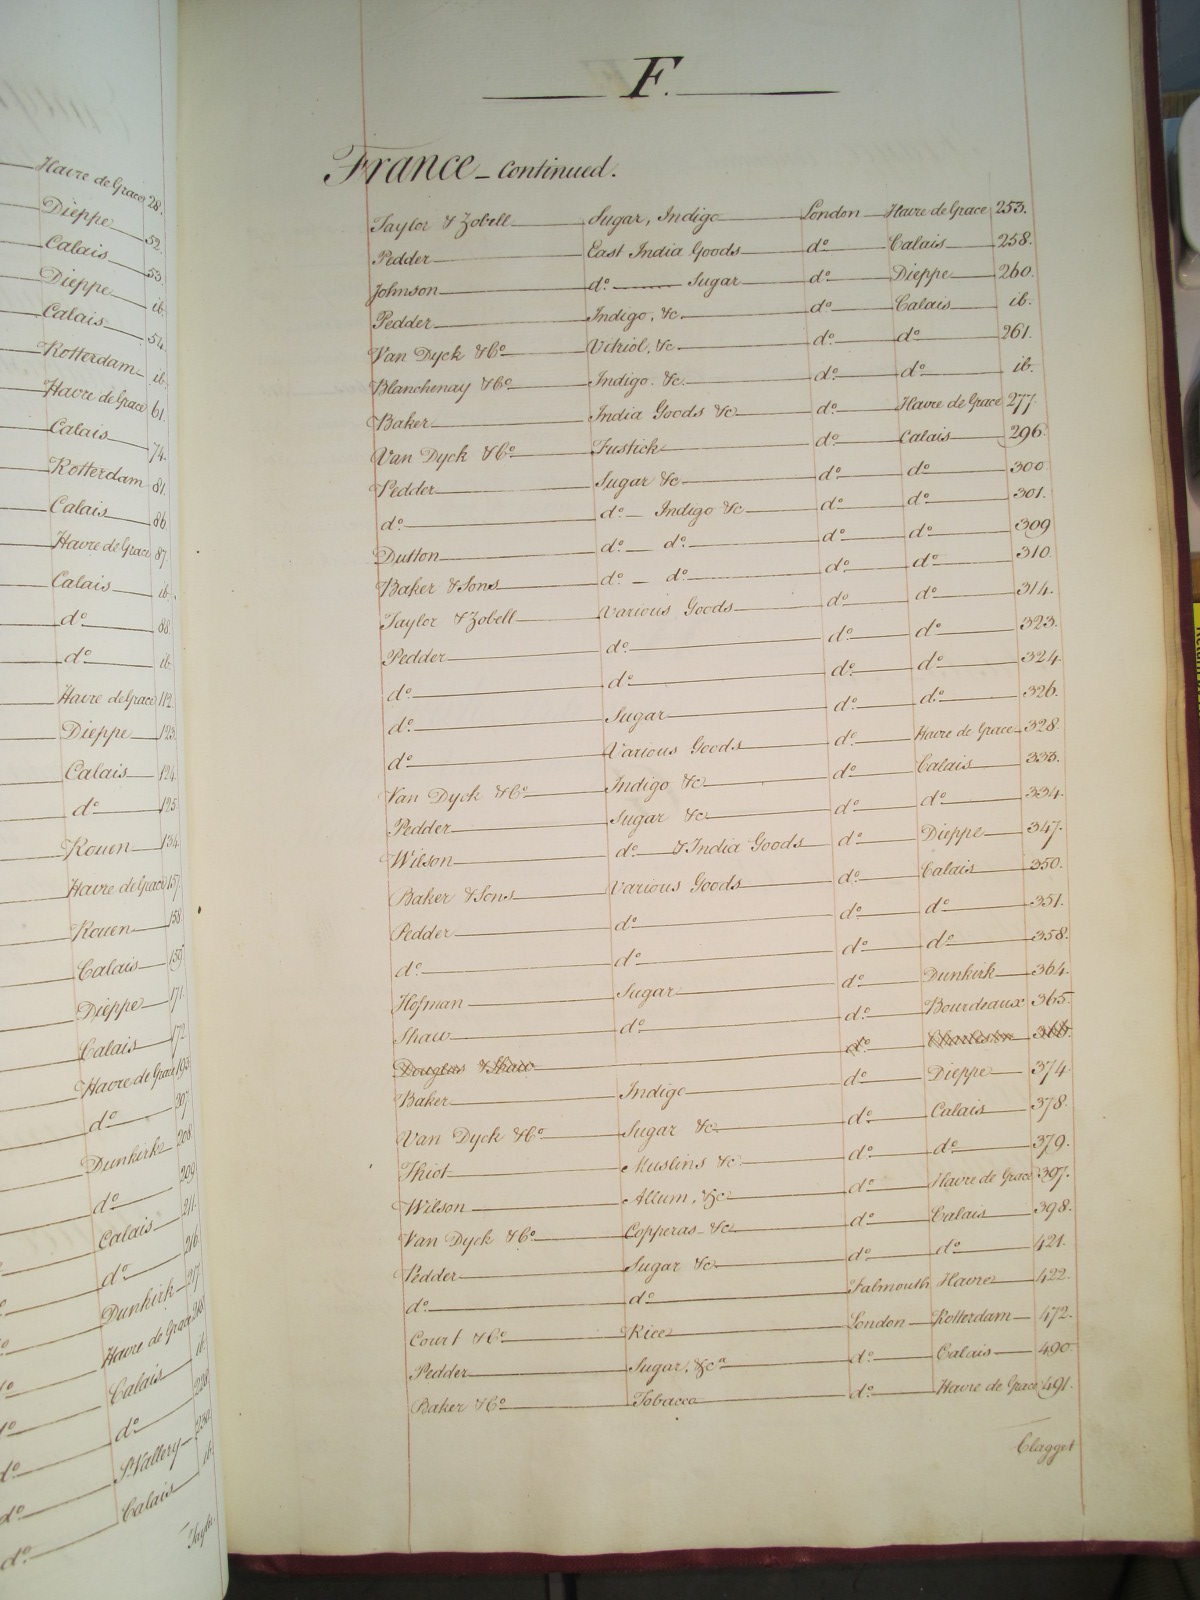 Havre de Grace 28.
Dieppe 52.
Calais 53.
Dieppe ib.
Calais 54.
Rotterdam ib.
Havre de Grace 61.
Calais 74.
Rotterdam 81.
Calais 86
Havre de Grace 87.
Calais ib.
do 88.
do ib.
Havre de Grace 112.
Dieppe 123.
Calais 124.
do 125
Rouen 134.
Havre de Grace 157.
Rouen 158
Calais 159.
Dieppe 171.
Calais 172.
Havre de Grace 193.
do 207.
Dunkirk 208.
do 209.
Calais 211.
do 216.
Dunkirk 217.
Havre de Grace 218.
Calais ib.
do do
do St Vallery 230.
do Calais ib.
Taylor
F.
France - Continued.
Taylor & Zobell Sugar, Indigo London Havre de Grace 253.
Pedder East India Goods do Calais 258.
Johnson do Sugar do Dieppe 260.
Pedder Indigo, &c. do Calais ib.
Van Dyck & Co Vitriol, &c. do do 261.
Blanchenay & Co Indigo. &c. do do ib.
Baker India Goods &c do Havre de Grace 277.
Van Dyck & Co Fustick do Calais 296.
Pedder Sugar &c do do 300.
do do Indigo &c do do 301.
Dutton do do do do 309
Baker & Sons do do do do 310.
Taylor & Zobell Various Goods do do 314.
Pedder do do do 323.
do do do do 324.
do Sugar do do 326.
do Various Goods do Havre de Grace 328.
Van Dyck & Co Indigo &c do Calais 333.
Pedder Sugar &c do do 334.
Wilson do & India Goods do Dieppe 347.
Baker & Sons Various Goods do Calais 350.
Pedder do do do 351.
do do do do 358.
Hofman Sugar do Dunkirk 364.
Shaw do do Bourdeaux 365.
Douglas & Shaw do Charleston 366.
Baker Indigo do Dieppe 374.
Van Dyck & Co Sugar &c. do Calais 378.
Thiot Muslins &c do do 379.
Wilson Allum, &c do Havre de Grace 397.
Van Dyck & Co Copperas &c. do Calais 398.
Pedder Sugar &c do do 421.
do do Falmouth Havre 422.
Court & Co Rice London Rotterdam 472.
Pedder Sugar, &ca do Calais 490.
Baker & Co Tobacco do Havre de Grace 491.
Clagget